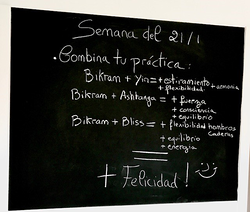 Semana del 21/1
. Combina tu práctica:
Bikram + Yin = + estiramiento + armonía
+ flexibilidad
Bikram + Ashtanga = + fuerza
+ consciencia
+ equilibrio
Bikram + Bliss = + flexibilidad hombros
caderas
+ equilibrio
+ energía
+ Felicidad!